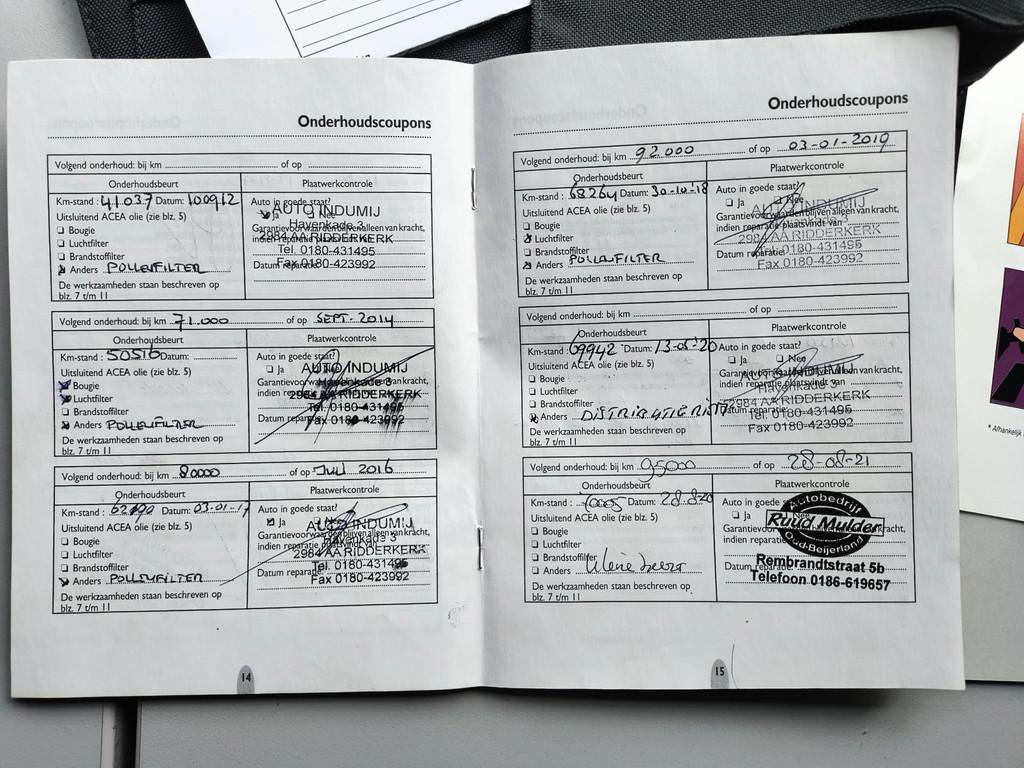 Onderhoudscoupons
Volgend onderhoud: bij km ... of op ...
Onderhoudsbeurt Plaatwerkcontrole
Km-stand : 41037 Datum: 100912 Auto in goede staat?
Uitsluitend ACEA olie (zie blz. 5) Ja Nee
Bougie Garantievoorwaarden blijven alleen van kracht,
Luchtfilter indien reparatie plaatsvindt van
Brandstoffilter
Anders POLLENFILTER Datum reparatie:
De werkzaamheden staan beschreven op
blz. 7 t/m 11
AUTO INDUMIJ
Havenkade 3
2984 AA RIDDERKERK
Tel. 0180-431495
Fax 0180-423992
Volgend onderhoud: bij km 71.000 of op SEPT-2014
Onderhoudsbeurt Plaatwerkcontrole
Km-stand : 50516 Datum: Auto in goede staat?
Uitsluitend ACEA olie (zie blz. 5) Ja
Bougie Garantievoorwaarden blijven alleen van kracht,
Luchtfilter indien reparatie
Brandstoffilter
Anders POLLENFILTER Datum reparatie:
De werkzaamheden staan beschreven op
blz. 7 t/m 11
AUTO INDUMIJ
Havenkade 3
2984 AA RIDDERKERK
Tel. 0180-431495
Fax 0180-423992
Volgend onderhoud: bij km 80000 of op JULI 2016
Onderhoudsbeurt Plaatwerkcontrole
Km-stand : Datum: 03-01-17 Auto in goede staat?
Uitsluitend ACEA olie (zie blz. 5) Ja
Bougie Garantievoorwaarden blijven alleen van kracht,
Luchtfilter indien reparatie
Brandstoffilter
Anders POLLENFILTER Datum reparatie:
De werkzaamheden staan beschreven op
blz. 7 t/m 11
AUTO INDUMIJ
Havenkade 3
2984 AA RIDDERKERK
Tel. 0180-431495
Fax 0180-423992
14
Onderhoudscoupons
Volgend onderhoud: bij km 92.000 of op 03-01-2019
Onderhoudsbeurt Plaatwerkcontrole
Km-stand : 68264 Datum: 30-10-18 Auto in goede staat?
Uitsluitend ACEA olie (zie blz. 5) Ja Nee
Bougie Garantievoorwaarden blijven alleen van kracht,
Luchtfilter indien reparatie plaatsvindt van
Brandstoffilter
Anders POLLENFILTER Datum reparatie:
De werkzaamheden staan beschreven op
blz. 7 t/m 11
AUTO INDUMIJ
Havenkade 3
2984 AA RIDDERKERK
Tel. 0180-431495
Fax 0180-423992
Volgend onderhoud: bij km ... of op ...
Onderhoudsbeurt Plaatwerkcontrole
Km-stand : 69942 Datum: 13-05-20 Auto in goede staat?
Uitsluitend ACEA olie (zie blz. 5) Ja Nee
Bougie Garantievoorwaarden blijven alleen van kracht,
Luchtfilter indien reparatie plaatsvindt van
Brandstoffilter
Anders DISTRIBUTIERIEM Datum reparatie:
De werkzaamheden staan beschreven op
blz. 7 t/m 11
AUTO INDUMIJ
Havenkade 3
2984 AA RIDDERKERK
Tel. 0180-431495
Fax 0180-423992
Volgend onderhoud: bij km 95000 of op 28-08-21
Onderhoudsbeurt Plaatwerkcontrole
Km-stand : Datum: 28-8-20 Auto in goede staat?
Uitsluitend ACEA olie (zie blz. 5) Ja Nee
Bougie
Luchtfilter indien reparatie
Brandstoffilter
Anders Kleine beurt Datum reparatie:
De werkzaamheden staan beschreven op
blz. 7 t/m 11
Autobedrijf
Ruud Mulder
Oud-Beijerland
Rembrandtstraat 5b
Telefoon 0186-619657
15
* Afhankelijk